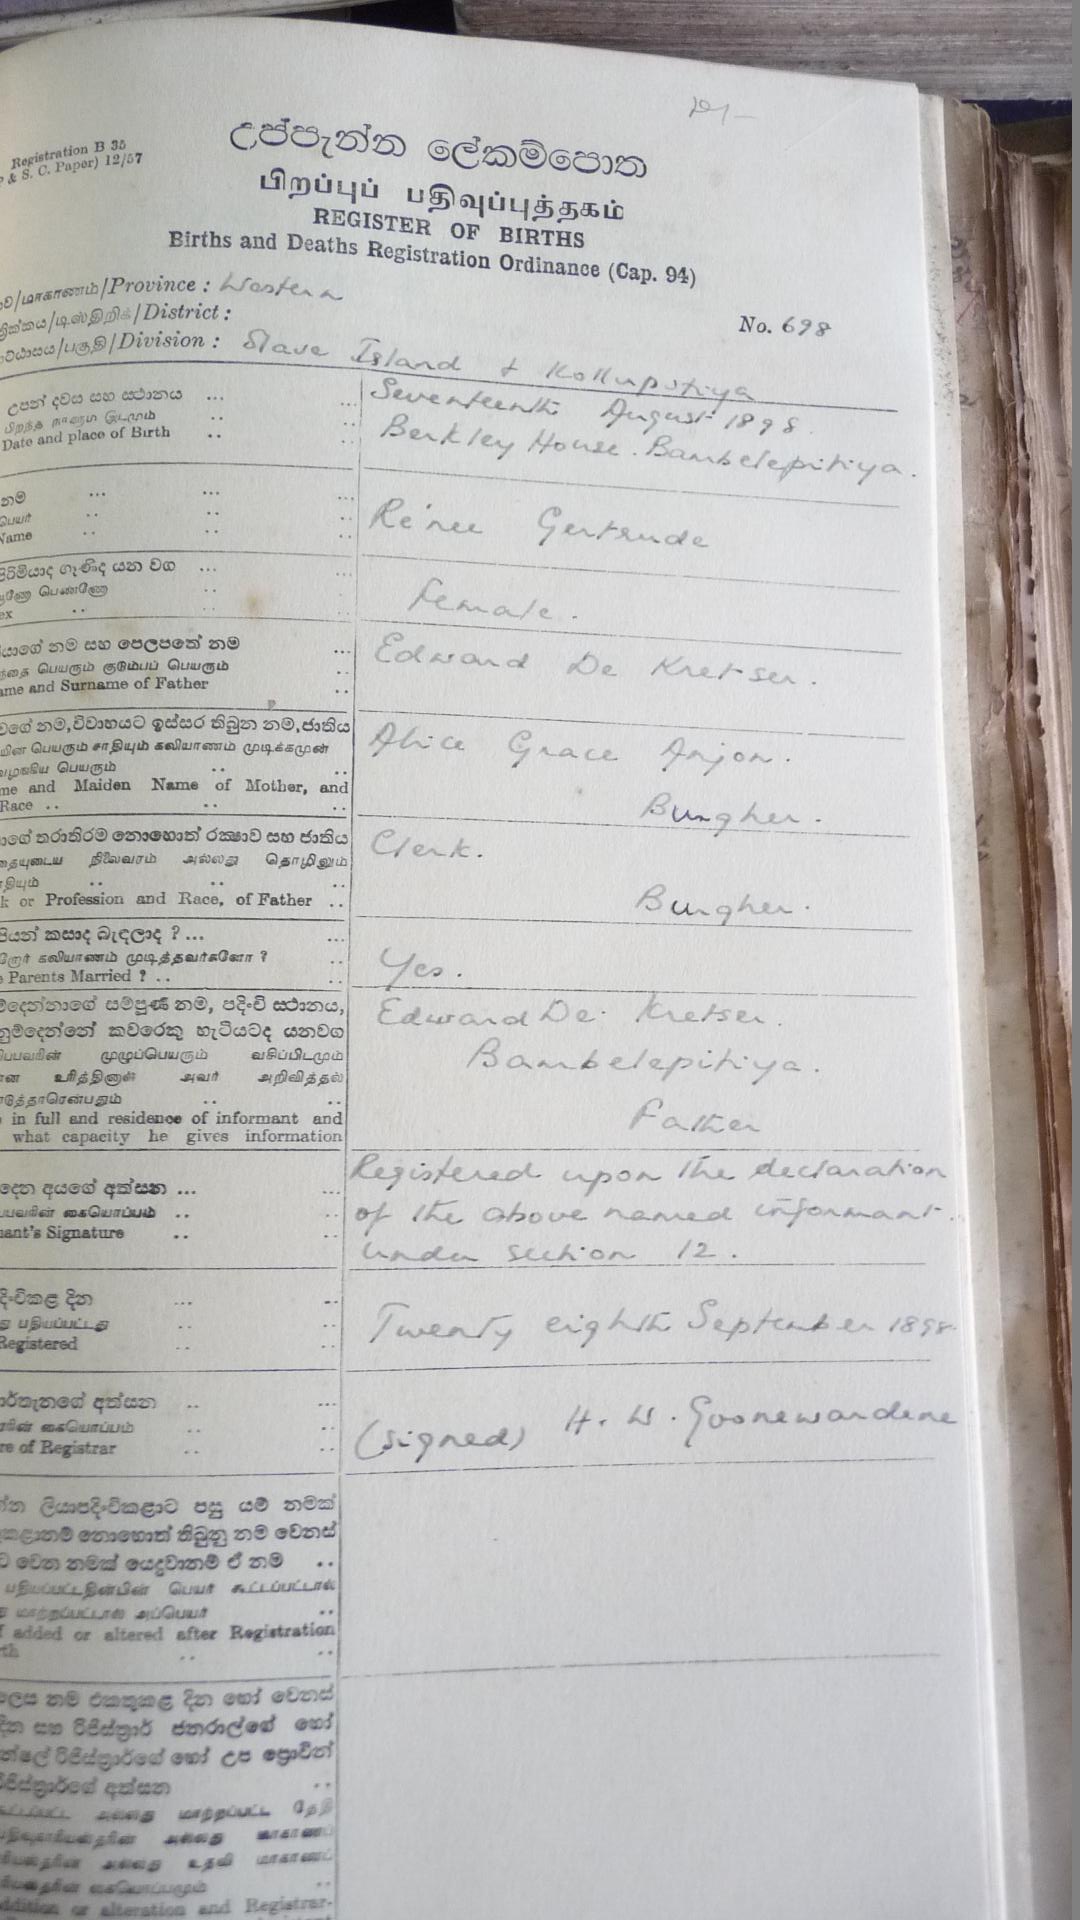 Registration B 35
& S. C. Paper) 12/57
උප්පැන්න ලේකම්පොත
பிறப்புப் பதிவுப்புத்தகம்
REGISTER OF BIRTHS
Births and Deaths Registration Ordinance (Cap. 94)
/மாகாணம்/Province : Western
/District :
No. 698
/பகுதி/Division : Slave Island & Kollupitiya
උපන් දවස සහ ස්ථානය ...
Date and place of Birth ..
Seventeenth August 1898.
Berkley House. Bambelepitiya.
නම ... ... ...
பெயர் .. .. ..
Name .. .. ..
Re'nee Gertrude
පිරිමියාද ගෑණිද යන වග ... ...
பெண்ணோ .. ..
ex .. .. ..
Female.
යාගේ නම සහ පෙලපතේ නම ...
பெயரும் குடும்பப் பெயரும் ..
ame and Surname of Father ..
Edward De Kretser.
වගේ නම, විවාහයට ඉස්සර තිබුන නම, ජාතිය
பெயரும் சாதியும் கலியாணம் முடிக்கமுன்
பெயரும் .. ..
me and Maiden Name of Mother, and
Race .. .. ..
Alice Grace Anjon.
Burgher.
ගේ තරාතිරම නොහොත් රක්ෂාව සහ ජාතිය
நிலைவரம் அல்லது தொழிலும்
.. .. ..
k or Profession and Race, of Father ..
Clerk.
Burgher.
පියන් කසාද බැඳලාද ? ... ...
கலியாணம் முடித்தவர்களோ ? ..
Parents Married ? .. ..
Yes.
දෙන්නාගේ සම්පූර්ණ නම, පදිංචි ස්ථානය,
දැනුම්දෙන්නේ කවරෙකු හැටියටද යනවග
முழுப்பெயரும் வசிப்பிடமும்
உரித்தினுள் அவர் அறிவித்தல்
in full and residence of informant and
what capacity he gives information
Edward De. Kretser.
Bambelepitiya.
Father
දෙන අයගේ අත්සන ... ...
கையொப்பம் .. ..
ant's Signature .. ..
Registered upon the declaration
of the above named informant.
under section 12.
දිංචිකළ දින ... ...
பதியப்பட்டது .. ..
Registered .. ..
Twenty eighth September 1898
අත්සන .. ...
கையொப்பம் .. ..
re of Registrar .. ..
(signed) H. W. Goonewardene
ලියාපදිංචිකළාට පසු යම් නමක්
නොහොත් තිබුනු නම වෙනස්
වෙන නමක් යෙදුවානම් ඒ නම ..
பெயர் கூட்டப்பட்டால்
மாற்றப்பட்டால் அப்பெயர் ..
f added or altered after Registration
th .. ..
ලෙස නම එකතුකළ දින හෝ වෙනස්
දින සහ රිජිස්ත්‍රාර් ජනරාල්ගේ හෝ
රිජිස්ත්‍රාර්ගේ හෝ උප ප්‍රොවින්
රිජිස්ත්‍රාර්ගේ අත්සන ..
அல்லது மாற்றப்பட்ட தேதி
அல்லது மாகாணப்
அல்லது உதவி மாகாணப்
கையொப்பமும் ..
ddition or alteration and Registrar-